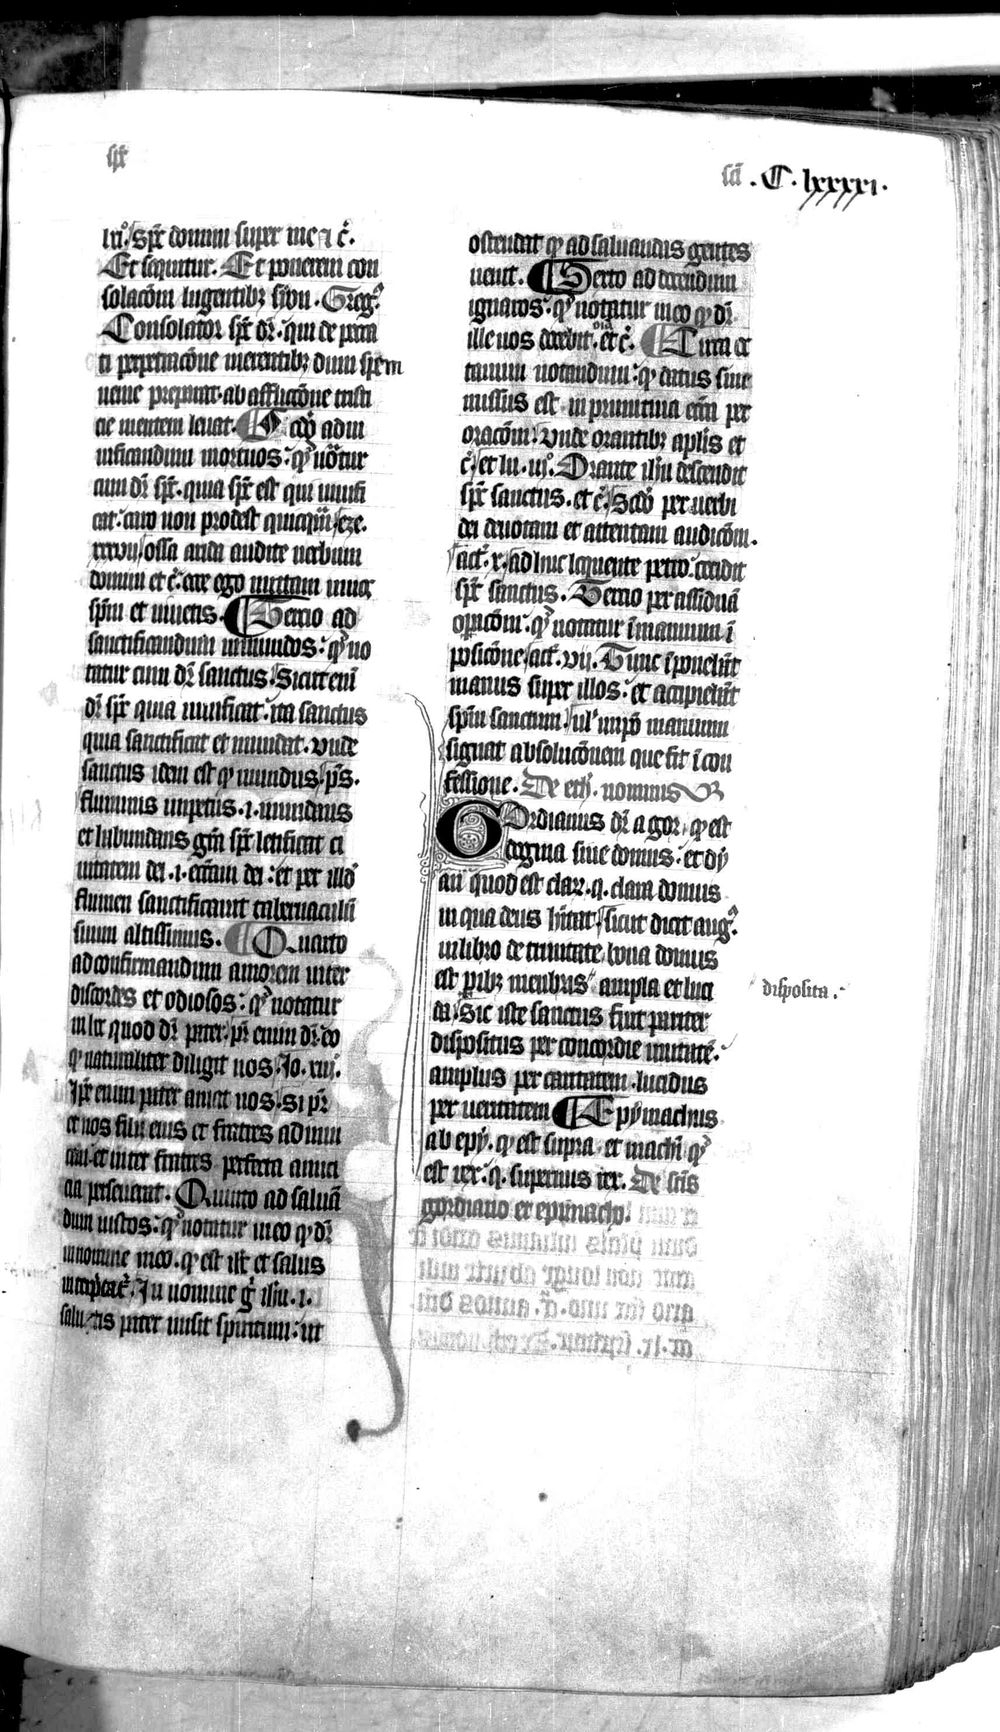 sp̄c
sc̄i . C . lxxxxi .
lxi°. Sp̄c domini super me ⁊ c̄.
Et sequitur. Et ponerem con
solac̄oem lugentibꝫ syon. Greg᷒.
Consolator sp̄c dr̄. qui de pecca
ti perpetrac̄one merentibꝫ dum spem
uenie preparat. ab afflicc̄one tristi
cie mentem leuat.
uificandum mortuos. qd̄ notatur
cum dr̄ sp̄c. quia sp̄c est qui uiuifi
cat. caro non prodest quicq̄m. eze.
xxxvii. ossa arida audite uerbum
domini et c̄. ecce ego mittam in uos
sp̄m et uiuetis. Tercio ad
sanctificandum immundos. qd̄ no
tatur cum dr̄ sanctus. Sicut eni
dr̄ sp̄c quia uiuificat. ita sanctus
quia sanctificat et mundat. vnde
sanctus idem est qd̄ mundus. p̄s.
fluminis impetus .i. mundans
et inhundans gr̄a sp̄c letificat ci
uitatem dei .i. eccl̄iam dei. et per illd̄
flumen sanctificauit tabernaculū
suum altissimus. Quarto
ad confirmandum amorem inter
discordes et odiosos. qd̄ notatur
in hoc quod dr̄ pater. pr̄ enim dr̄ eo
qd̄ naturaliter diligit nos. Jo. xvi.
Ip̄e enim pater amat uos. Si pr̄
et nos filii eius et fratres ad inui
cem. et inter fratres perfecta amici
cia perseuerat. Quinto ad saluā
dum iustos. qd̄ notatur in eo qd̄ dr̄
in nomine meo. qd̄ est ih̄c et salus
interp̄tat᷒. In nomine g̊ ih̄u .i.
salutis pater misit spiritum. ut
ostendat qd̄ ad saluandas gentes
uenit. Sexto ad docendum
ignaros. qd̄ notatur in eo qd̄ dr̄.
ille uos docebit oīa et c̄. Circa
tamen notandum. qd̄ datus siue
missus est in primitiua eccl̄ia per
orac̄oem. vnde orantibꝫ aplīs et
c̄. et lu. iii°. Orante ih̄u descendit
sp̄c sanctus. et c̄. Scd̄o per uerbi
dei deuotam et attentam audic̄oem.
act᷒. x. adhuc loquente petro. cecidit
sp̄c sanctus. Tercio per assiduā
operac̄oem. qd̄ notatur ī manuum ī
posicōne. act᷒. vii. Tunc īponebāt
manus super illos. et accipiebāt
sp̄m sanctum. ul' imp̄o manuum
signat absoluc̄onem que fit ī con
fessione. De eth. nominis
Gordianus dr̄ a geos. qd̄ est
dogma siue domus. et dy
an quod est clarꝫ. q. clara domus
in qua deus hītat. sicut dicit aug᷒.
in libro de trinitate. bona domus
est p̄ibꝫ menbris ampla et luci
da. Sic iste sanctus fuit pariter
dispositus per concordie unitatē.
amplus per caritatem. lucidus
per ueritatem Epymachus
ab epy. qd̄ est supra. et machi qd̄
est rex. q. supernus rex. De sc̄is
gordiano et epimacho.
disposita.